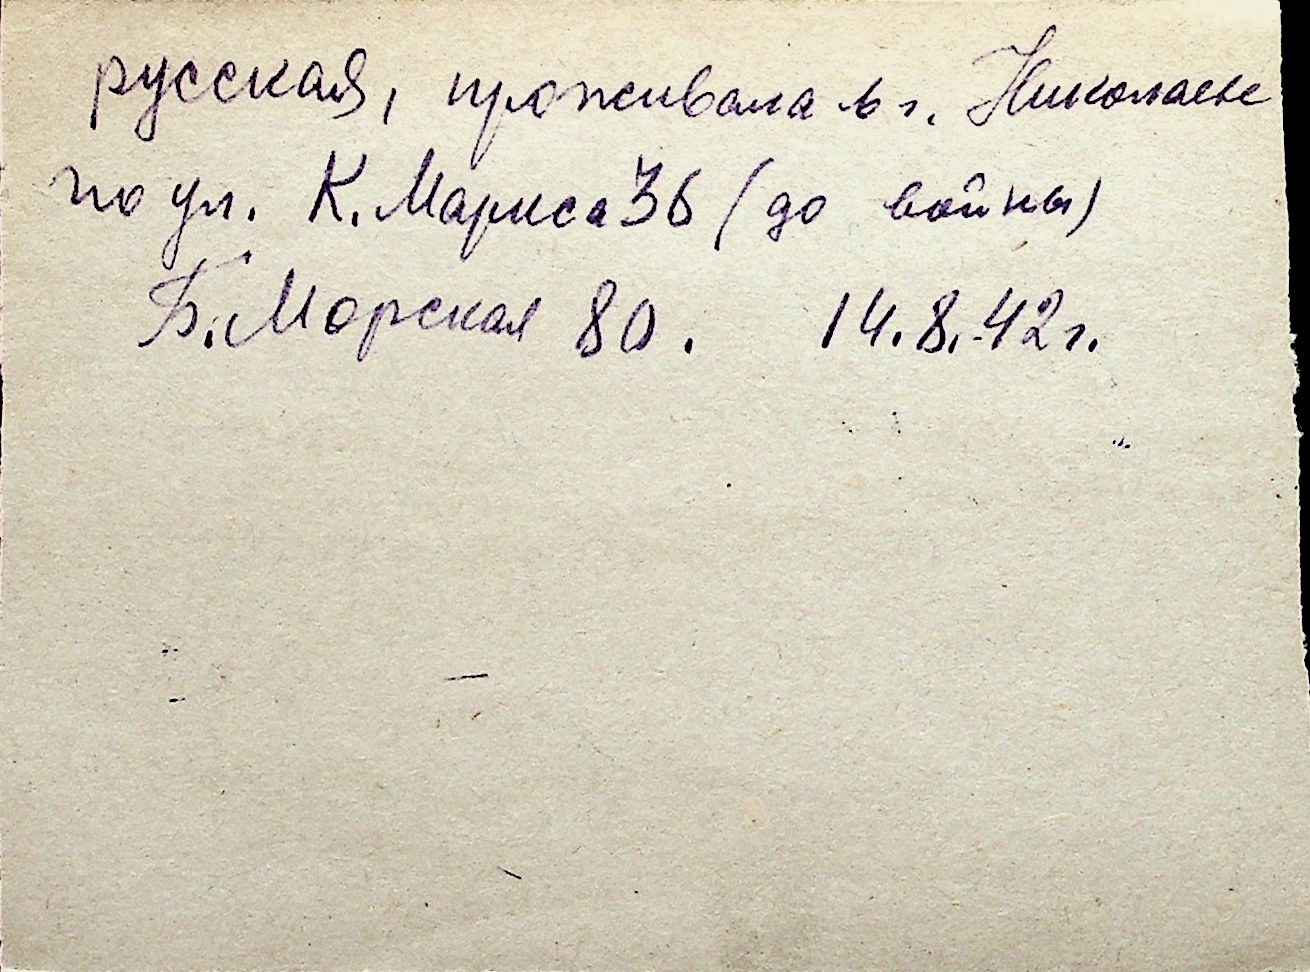 русская, проживала в г. Николаеве
по ул. К. Маркса 36 (до войны)
Б. Морская 80. 14.8.42 г.